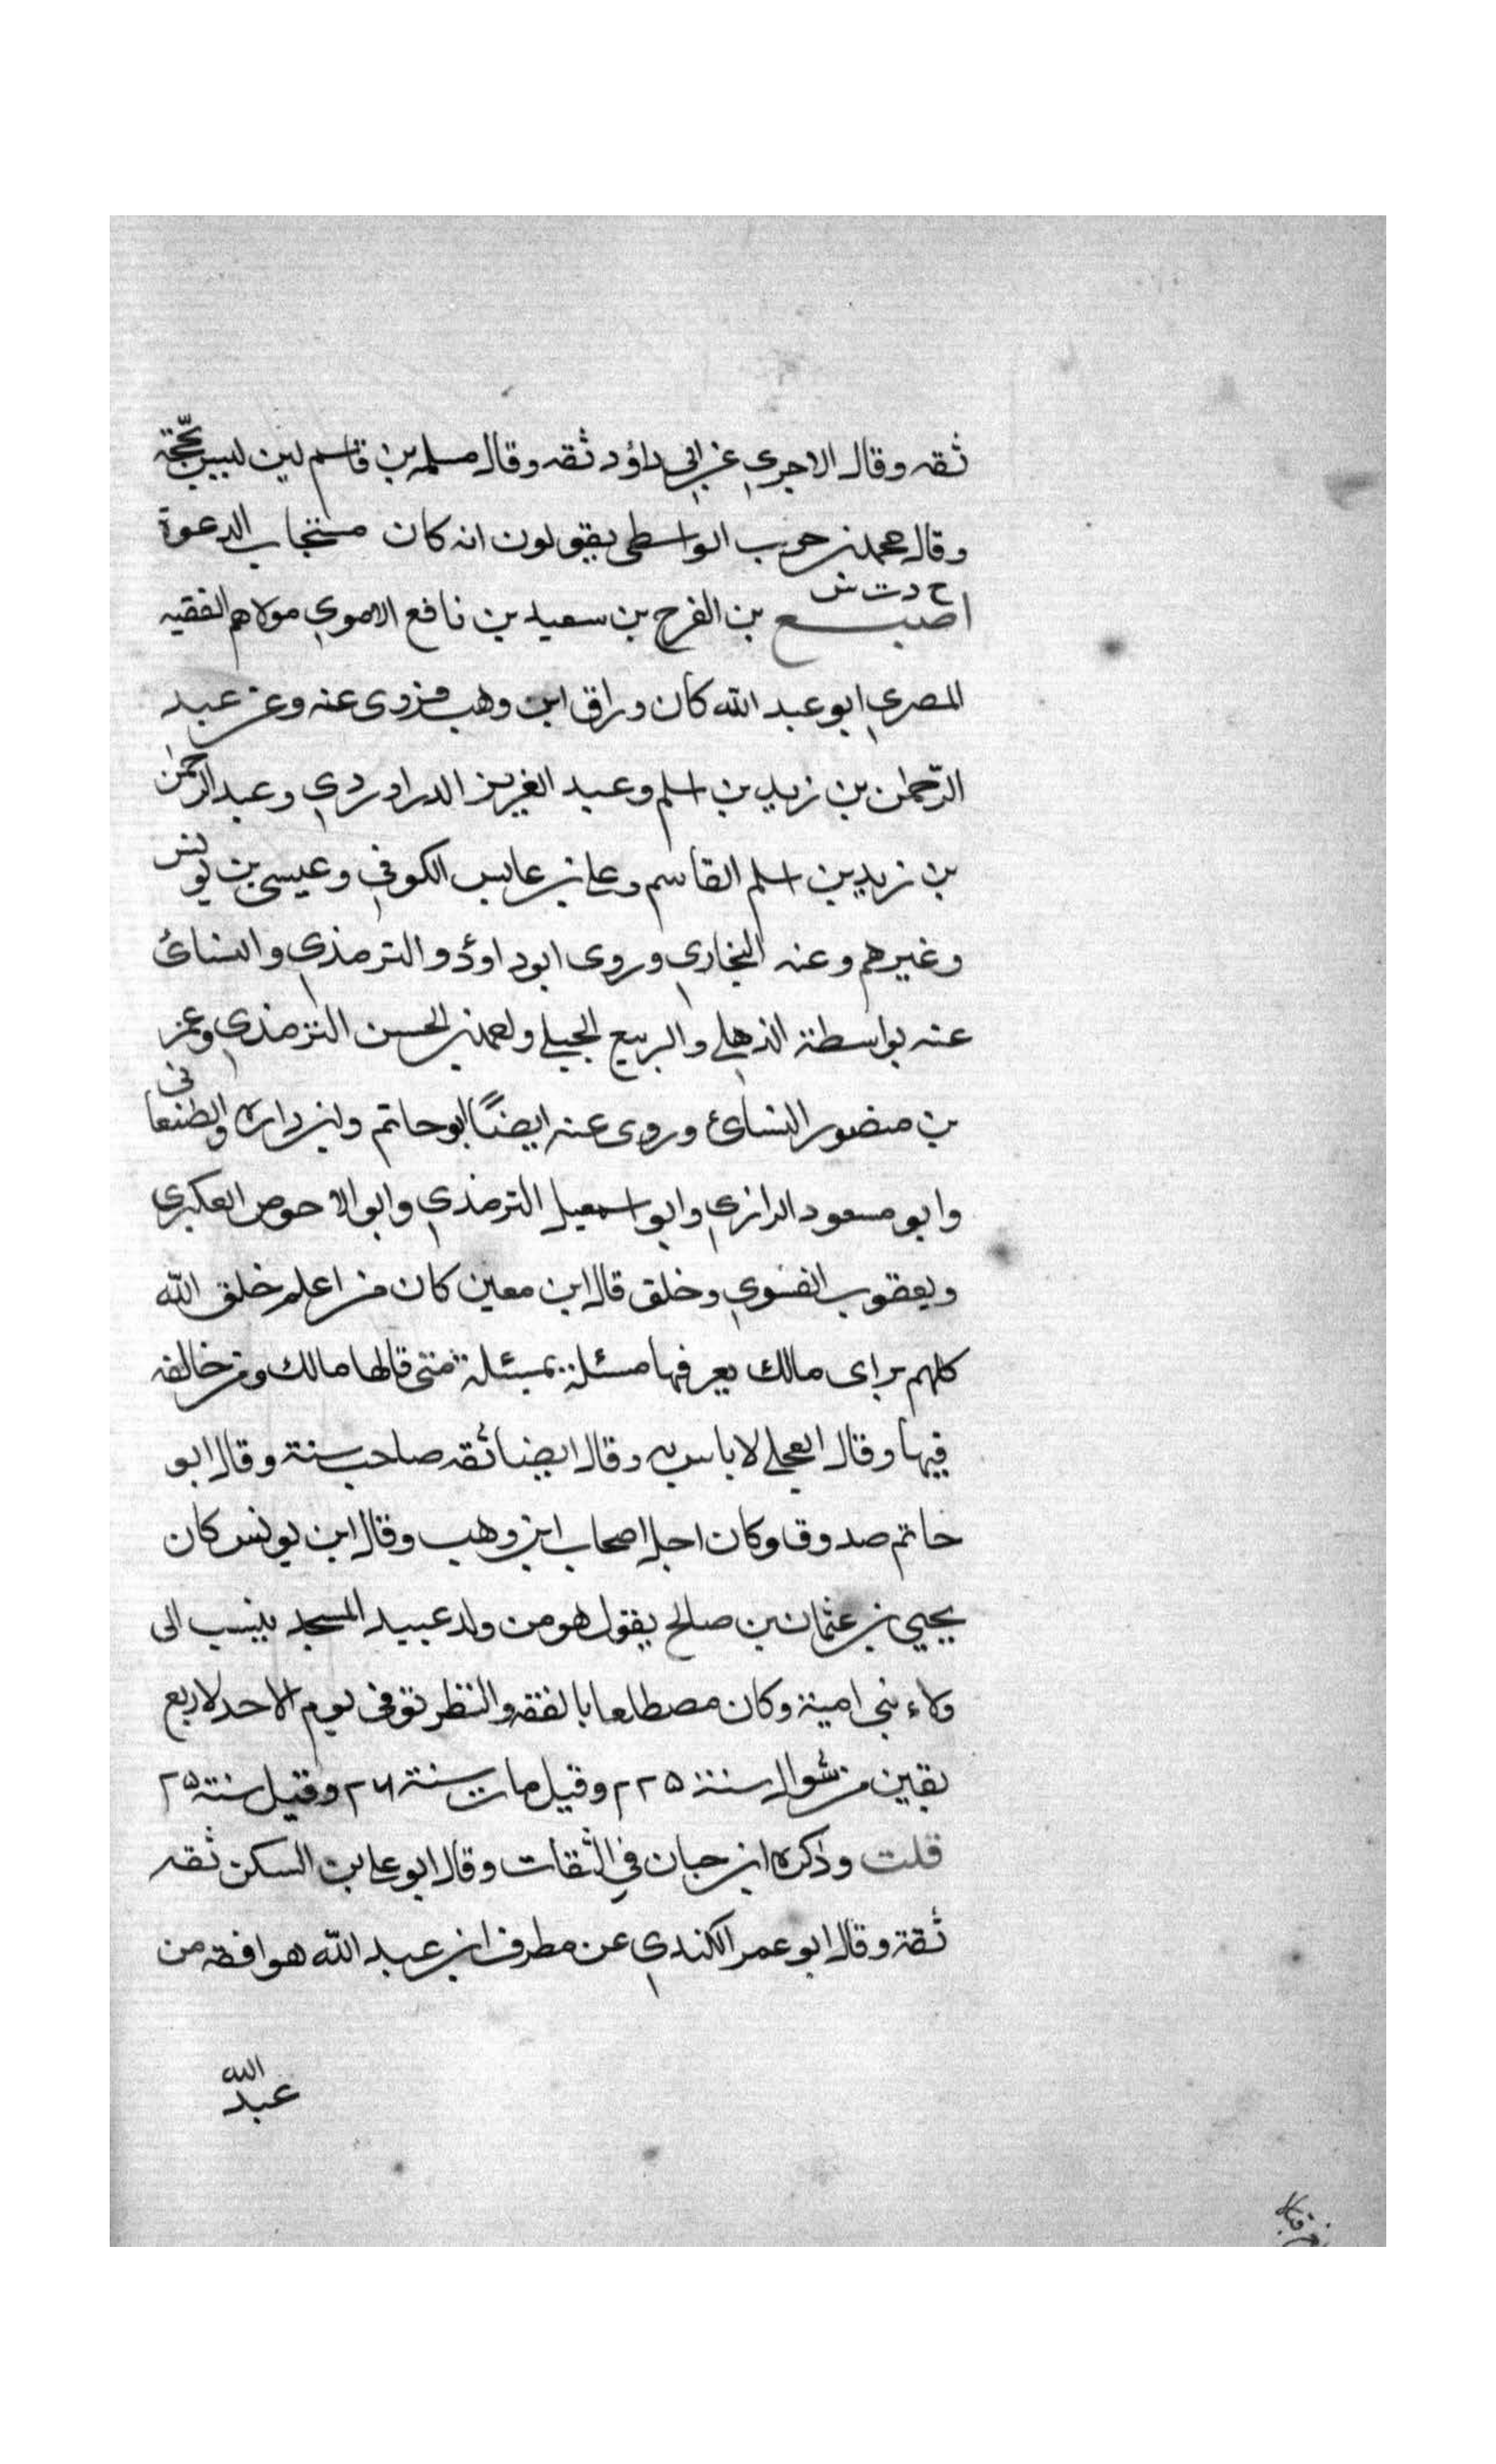 ثقه وقال الاجري عن ابي داؤد ثقه وقال مسلمه بن قاسم لين ليس بحجة
وقال محمد بن حرب الواسطى يقولون انه كان مستجاب الدعوة
خ د ت س
اصبغ بن الفرج بن سعيد بن نافع الاموي مولاهم الفقيه
المصري ابو عبد الله كان وراق ابن وهب فروى عنه وعن عبد
الرحمن بن زيد بن اسلم وعبد العزيز الدراوردي وعبد الرحمن
بن زيد بن اسلم القاسم وعلى بن عابس الكوفي وعيسى بن يونس
وغيرهم وعنه البخاري وروى ابو داوُد والترمذي والنسائ
عنه بواسطة الذهلي والربيع الجيلي واحمد بن الحسن الترمذي وعمر
بن منصور النسائ وروى عنه ايضاً ابو حاتم وابن واره
وابو مسعود الرازي وابو اسمعيل الترمذي وابو الاحوص العكبرى
ويعقوب الفسوي وخلق قال ابن معين كان من اعلم خلق الله
كلهم براى مالك يعرفها مسئلة بمسئلة متى قالها مالك ومن خالفه
فيها وقال العجلي لا باس به وقال ايضا ثقه صاحب سنة وقال ابو
حاتم صدوق وكان اجل اصحاب ابن وهب وقال ابن يونس كان
يحيي بن عثمان بن صالح يقول هو من ولد عبيد المسجد ينسب الى
ولاء بني امية وكان مصطلعا بالفقه والنظر توفى يوم الاحد لاربع
بقين من شوال سنة ٢٢٥ وقيل مات سنة ٢٤ وقيل سنة ٢٥
قلت وذكره ابن حبان في الثقات وقال ابو على بن السكن ثقه
ثقة وقال ابو عمر الكندي عن مطرف ابن عبد الله هو افقه من
عبد الله